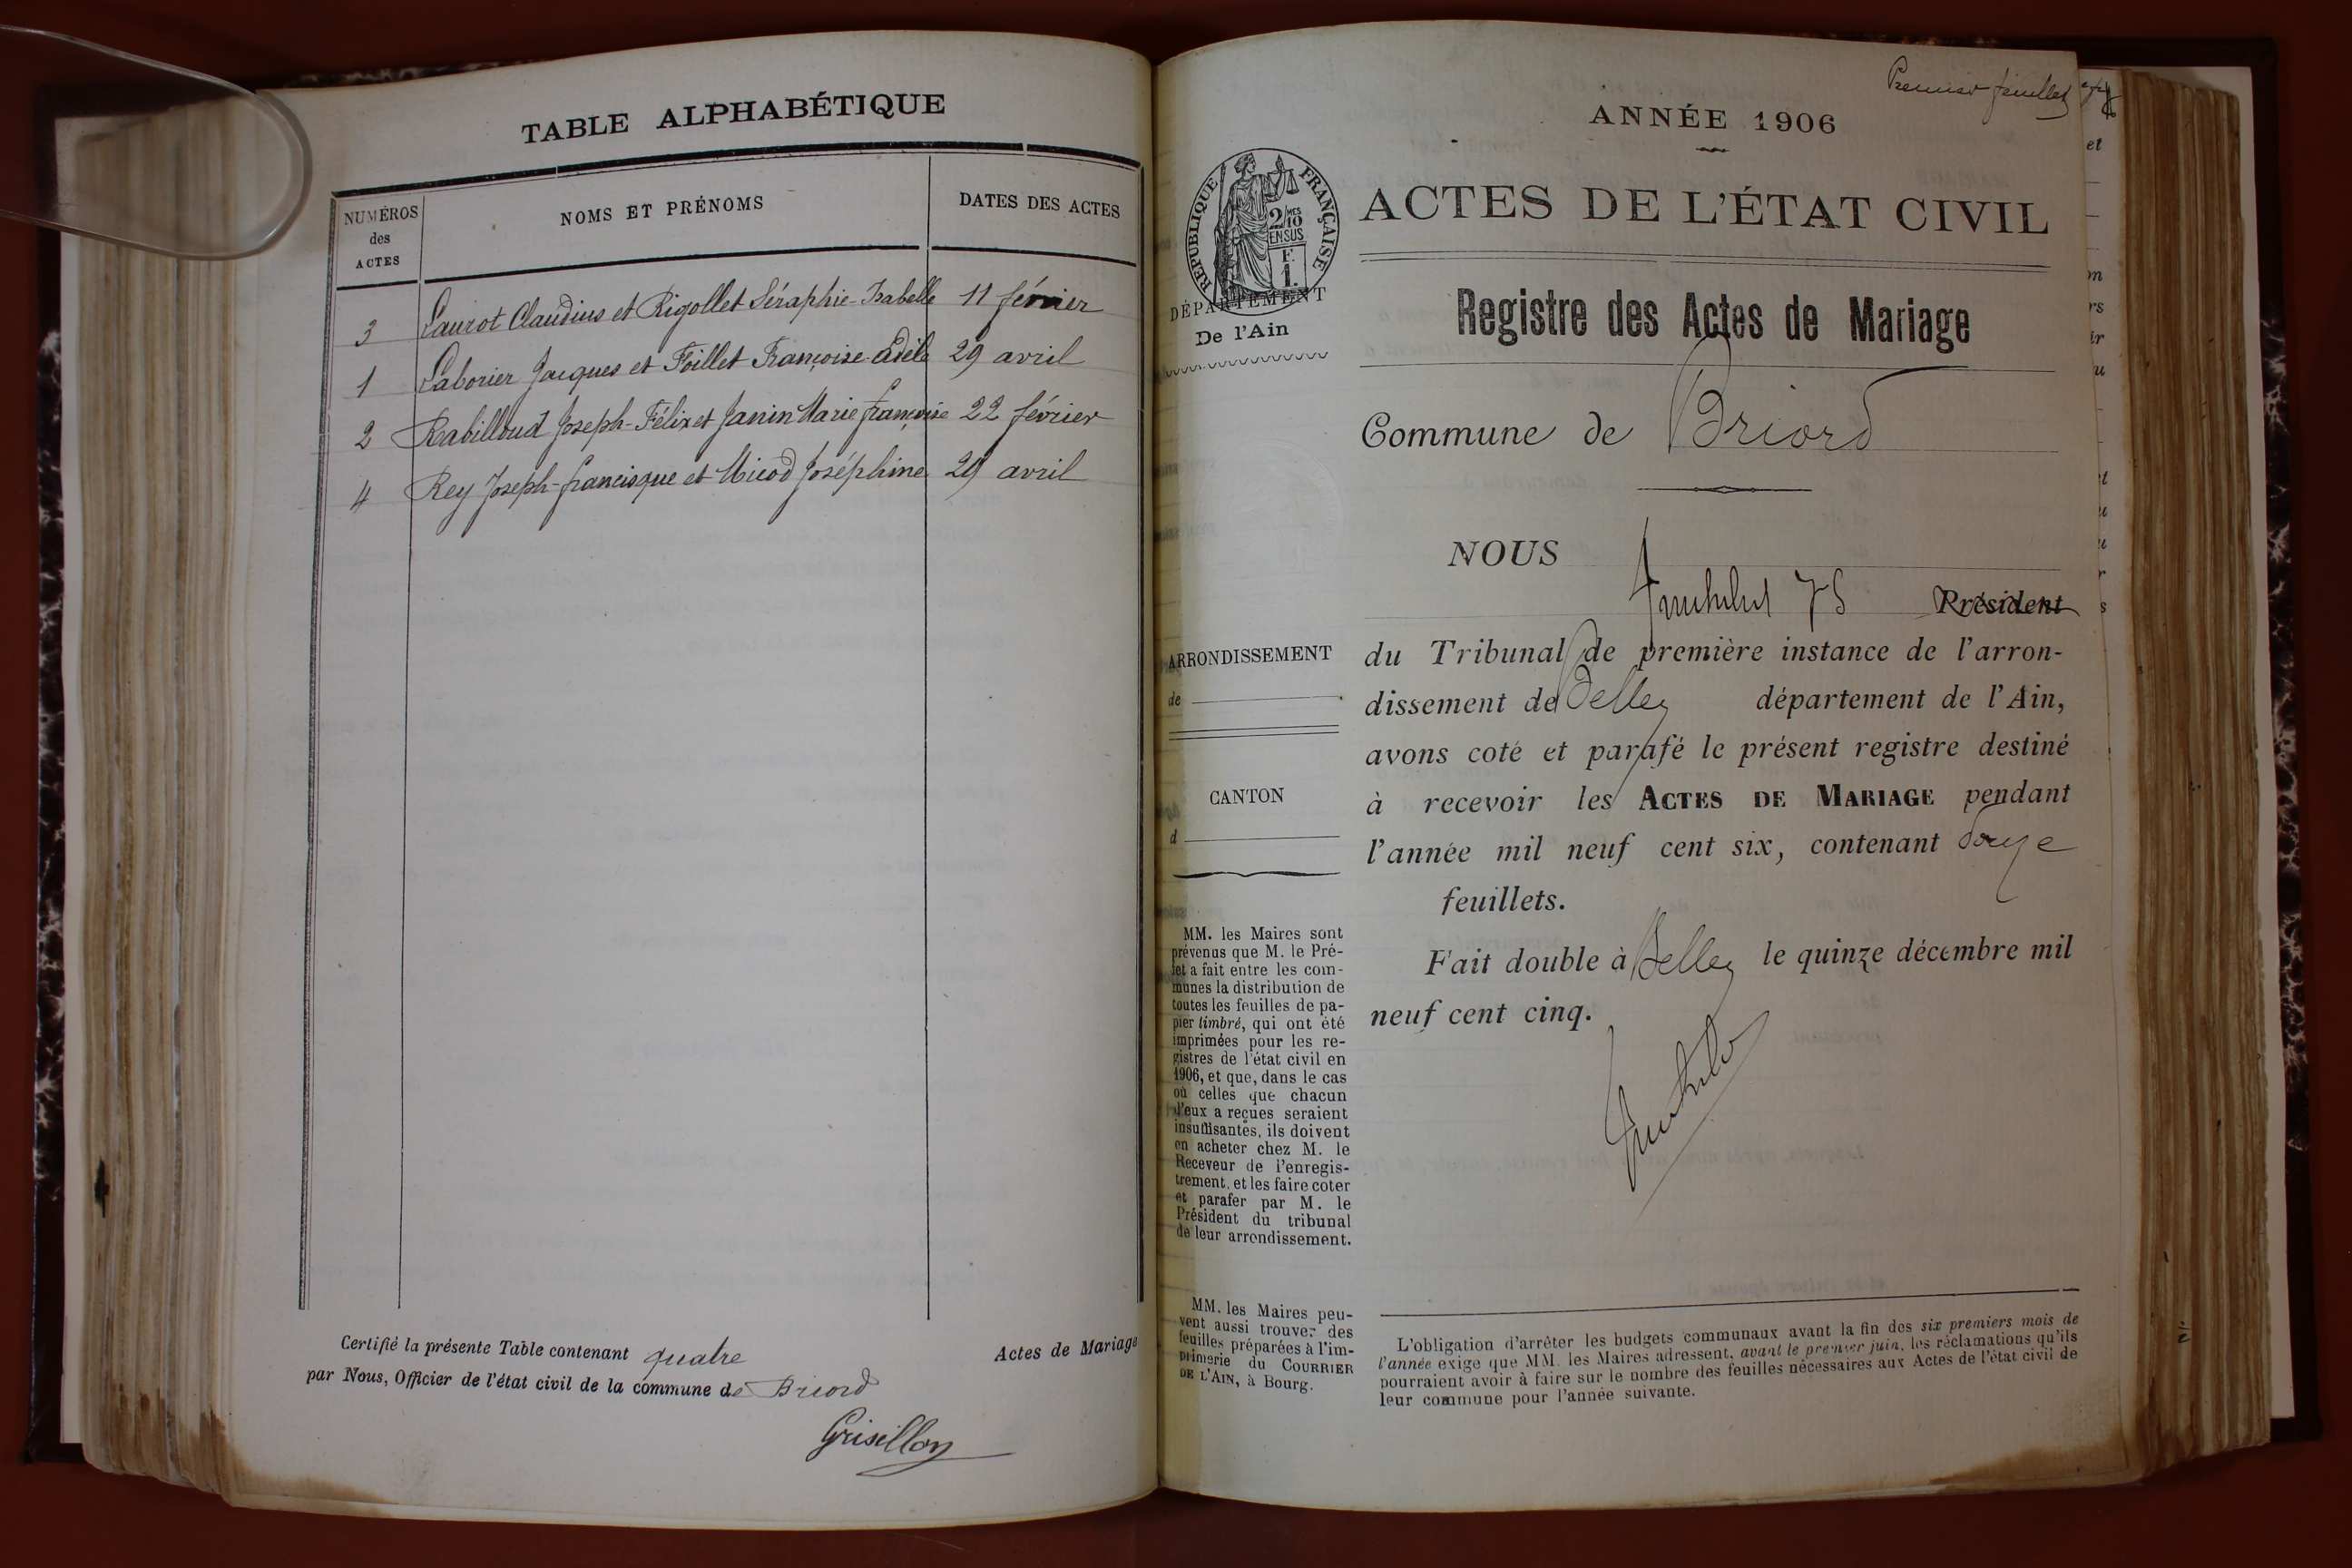 TABLE ALPHABÉTIQUE
NUMÉROS
des
ACTES
NOMS ET PRÉNOMS
DATES DES ACTES
3 Laurot Claudius et Rigollet Séraphie-Isabelle 11 février
1 Laborier Jacques et Foillet Françoise-Adèle 29 avril
2 Rabilloud Joseph-Félix et Janin Marie françoise 22 février
4 Rey Joseph-francisque et Micod Joséphine 29 avril
Certifié la présente Table contenant quatre
Actes de Mariage
par Nous, Officier de l'état civil de la commune de Briord
Grisillon
Premier feuillet
ANNÉE 1906
RÉPUBLIQUE FRANÇAISE
2/10 MES
EN SUS
F.
1.
DÉPARTEMENT
De l'Ain
ACTES DE L'ÉTAT CIVIL
Registre des Actes de Mariage
Commune de Briord
NOUS
Président
du Tribunal de première instance de l'arron-
dissement de Belley département de l'Ain,
avons coté et parafé le présent registre destiné
à recevoir les ACTES DE MARIAGE pendant
l'année mil neuf cent six, contenant douze
feuillets.
Fait double à Belley le quinze décembre mil
neuf cent cinq.
ARRONDISSEMENT
de
CANTON
d
MM. les Maires sont
prévenus que M. le Pré-
fet a fait entre les com-
munes la distribution de
toutes les feuilles de pa-
pier timbré, qui ont été
imprimées pour les re-
gistres de l'état civil en
1906, et que, dans le cas
où celles que chacun
d'eux a reçues seraient
insuffisantes, ils doivent
en acheter chez M. le
Receveur de l'enregis-
trement, et les faire coter
et parafer par M. le
Président du tribunal
de leur arrondissement.
MM. les Maires peu-
vent aussi trouver des
feuilles préparées à l'im-
primerie du COURRIER
DE L'AIN, à Bourg.
L'obligation d'arrêter les budgets communaux avant la fin des six premiers mois de
l'année exige que MM. les Maires adressent, avant le premier juin, les réclamations qu'ils
pourraient avoir à faire sur le nombre des feuilles nécessaires aux Actes de l'état civil de
leur commune pour l'année suivante.